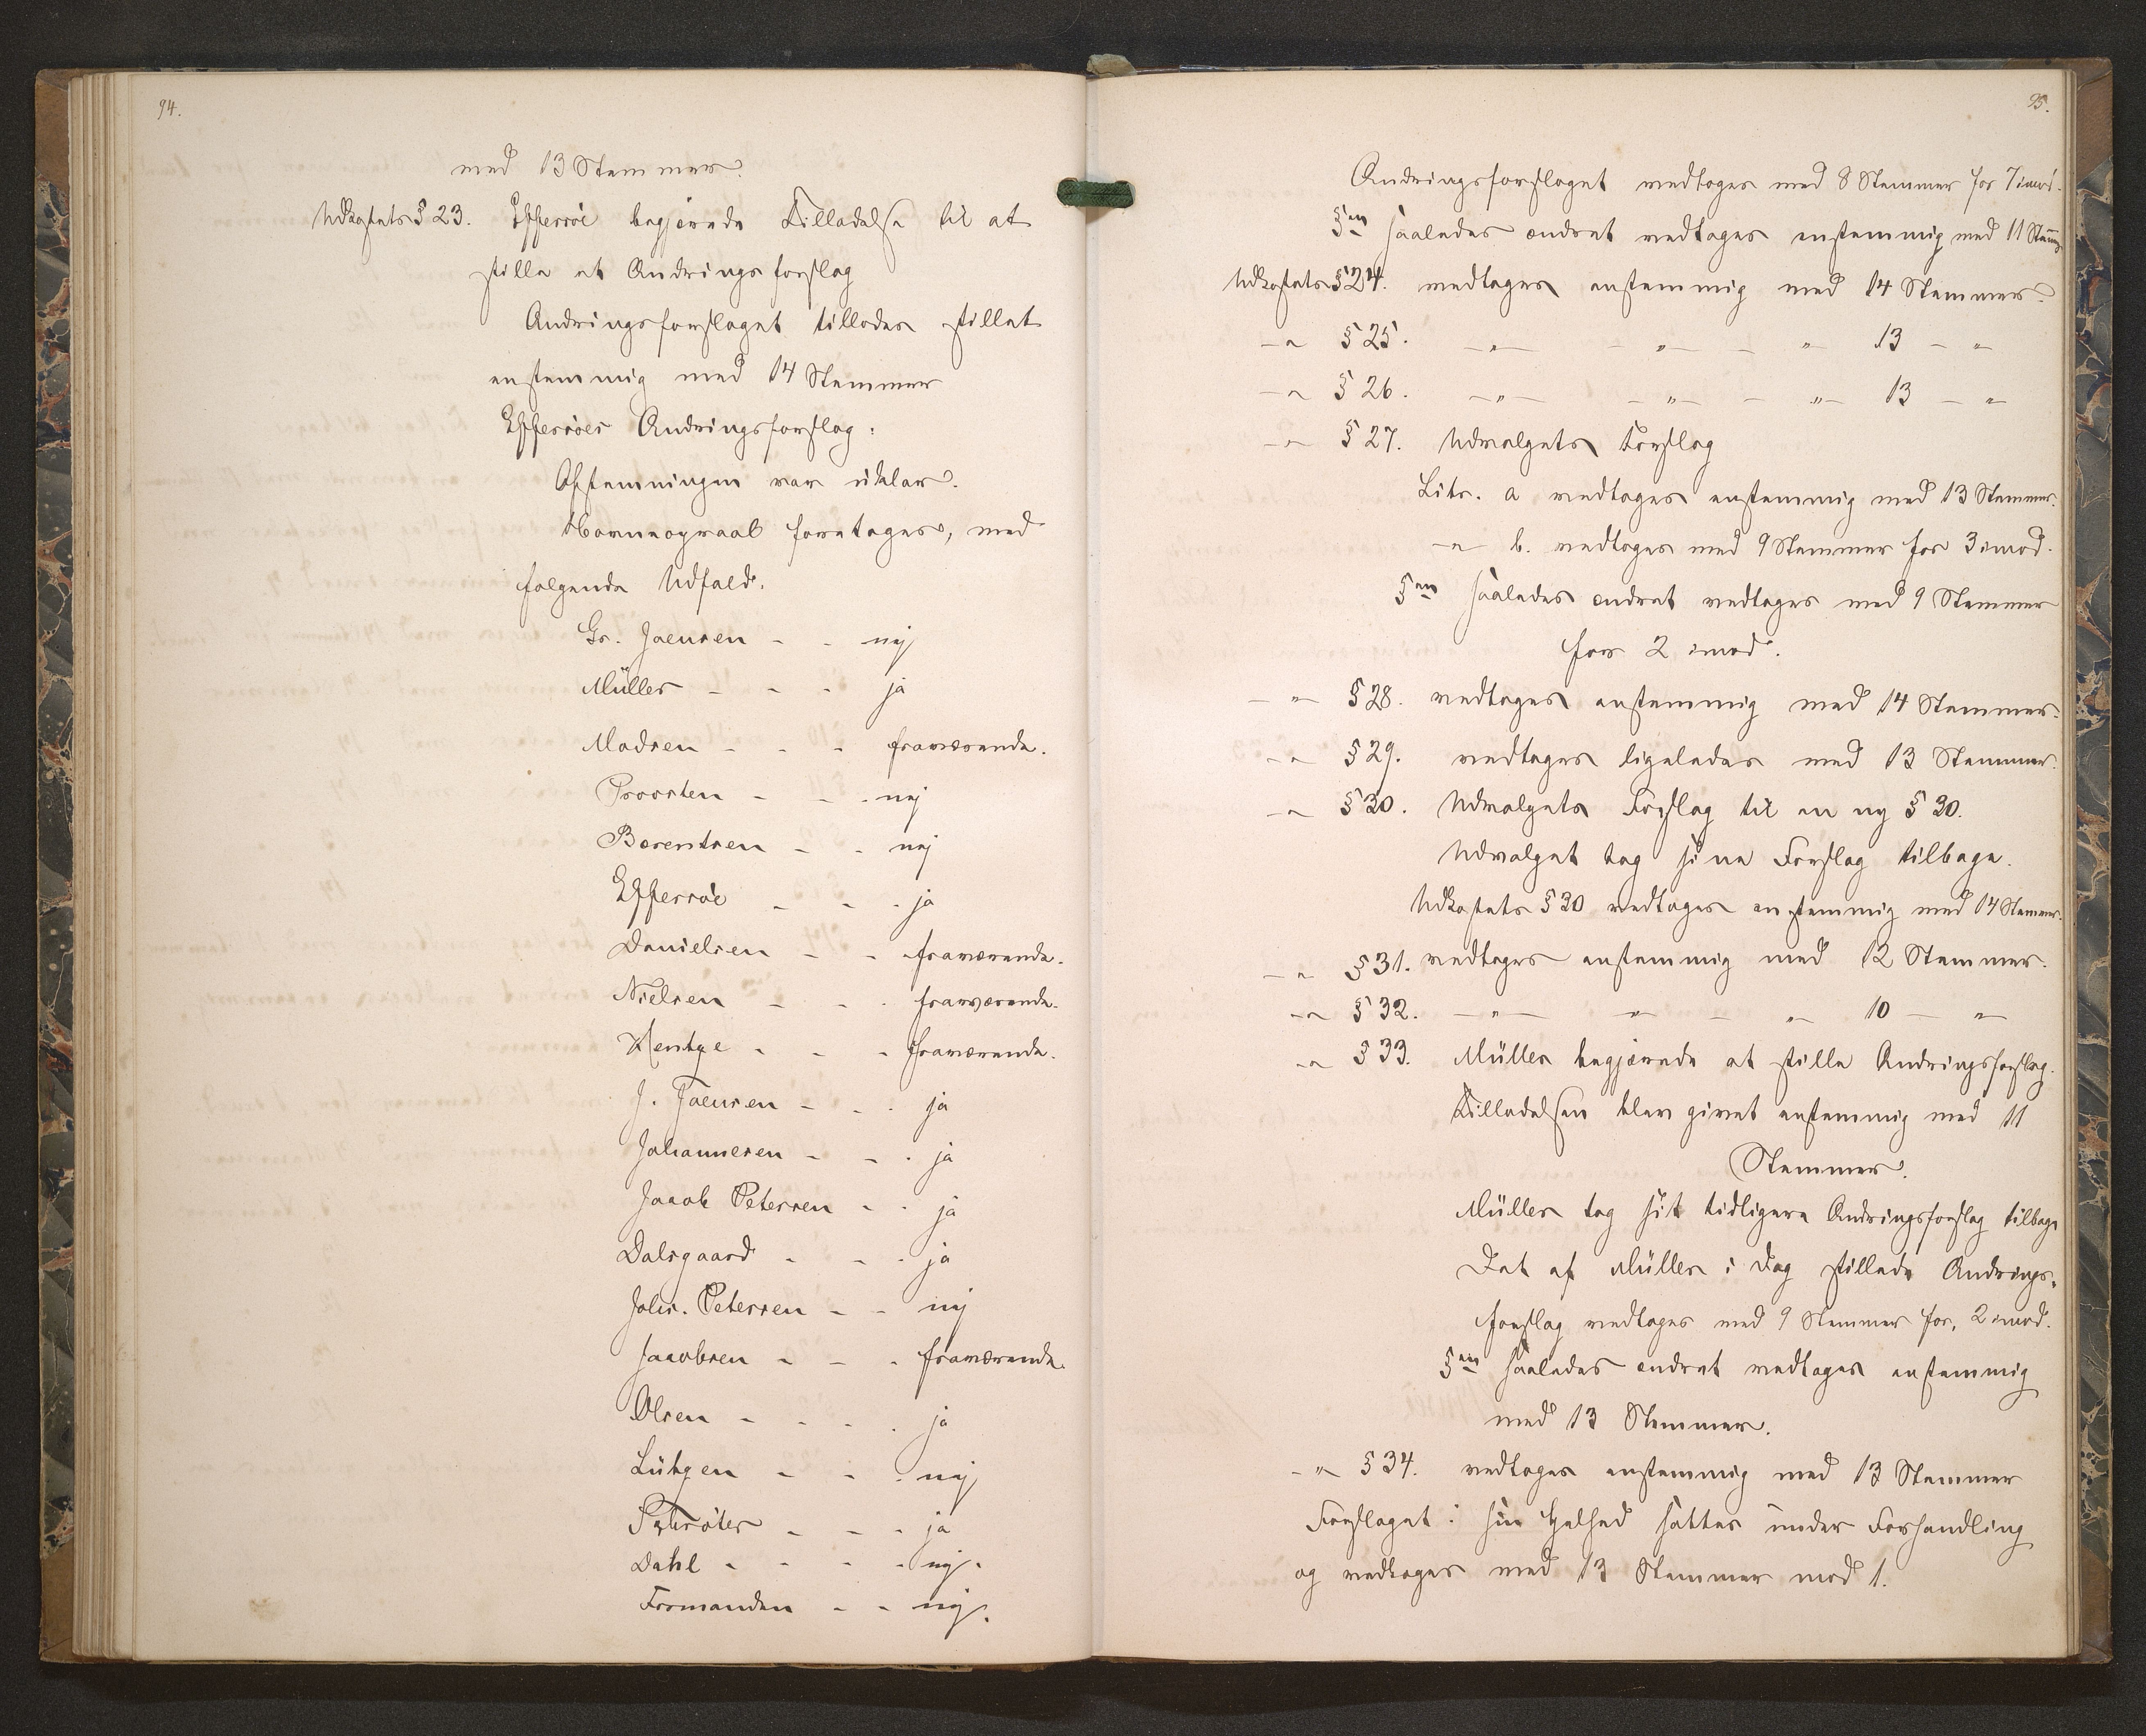 94.
med 13 Stemmer.
Udkastets § 23. Effersöe begjærede Tilladelse til at
stille et Andringsforslag
Andringsforslaget tillodes stillet
enstemmig med 14 Stemmer
Effersöes Andringsforslag:
Afstemningen var uklar.
Navneopraab foretages, med
følgende Udfald.
Gr. Joensen - - nej
Müller - - - ja
Madsen - - - fraværende.
Provsten - - - nej
Bærentsen - - nej
Effersöe - - - ja
Danielsen - - fraværende.
Nielsen - - - fraværende.
Hentze - - - fraværende.
J. Joensen - - - ja
Johannesen - - - ja
Jacob Petersen - - ja
Dalsgaard - - - ja
Johs. Petersen - - nej
Jacobsen - - - fraværende.
Olsen - - - - ja
Lützen - - - nej
Schrøter - - - ja
Dahl - - - - nej.
Formanden - - nej.
95.
Andringsforslaget vedtoges med 8 Stemmer for 7 imod.
§en saaledes ændret vedtages enstemmig med 11 Stemr.
Udkastets § 24. vedtages enstemmig med 14 Stemmer.
—"— § 25. —"— —"— — "— 13 — "—
—"— § 26. —"— —"— — "— 13 — "—
—"— § 27. Udvalgets Forslag
Litr. a vedtoges enstemmig med 13 Stemmer.
—"— b. vedtoges med 9 Stemmer for 3 imod.
§en saaledes ændret vedtoges med 9 Stemmer
for 2 imod.
—"— § 28. vedtoges enstemmig med 14 Stemmer.
—"— § 29. vedtoges ligeledes med 13 Stemmer.
—"— § 30. Udvalgets Forslag til en ny § 30.
Udvalget tog sine Forslag tilbage.
Udkastets § 30 vedtoges enstemmig med 14 Stemmer.
—"— § 31. vedtoges enstemmig med 12 Stemmer.
—"— § 32. —"— —"— — "— 10 — "—
—"— § 33. Müller begjærede at stille Andringsforslag.
Tilladelsen blev givet enstemmig med 11
Stemmer.
Müller tog sit tidligere Andringsforslag tilbage
Det af Müller i Dag stillede Andrings-
forslag vedtoges med 9 Stemmer for, 2 imod.
§en saaledes ændret vedtoges enstemmig
med 13 Stemmer.
—"— § 34. vedtoges enstemmig med 13 Stemmer
Forslaget i sin Helhed sattes under Forhandling
og vedtoges med 13 Stemmer mod 1.